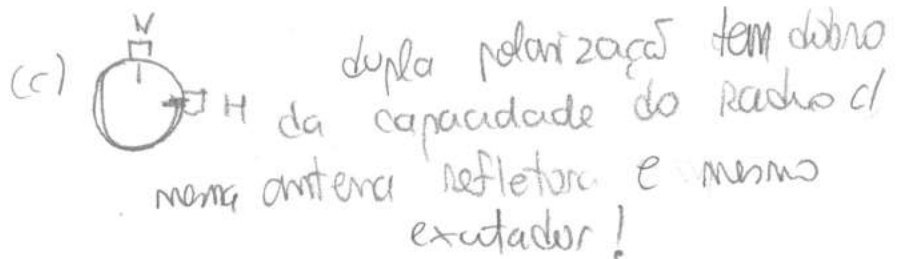 V
(c) H
dupla polarizaçã tem dobro
da capacidade do Radio c/
mesma antena refletora e mesmo
excitador!